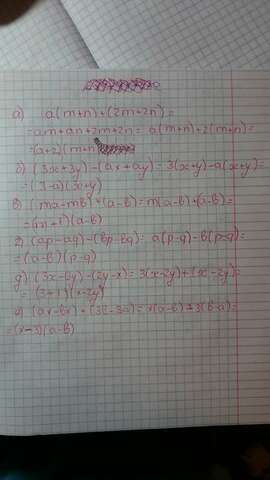 а) a(m+n)+(2m+2n)=
=am+an+2m+2n= a(m+n)+2(m+n)=
=(a+2)(m+n)
б) (3x+3y)-(ax+ay)= 3(x+y)-a(x+y)=
=(3-a)(x+y)
в) (ma-mb)+(a-b)=m(a-b)+(a-b)=
=(m+1)(a-b)
г) (ap-aq)-(bp-bq)= a(p-q)-b(p-q)=
=(a-b)(p-q)
д) (3x-6y)-(2y-x)=3(x-2y)+(x-2y)=
=(3+1)(x-2y)
е) (ax-bx)+(3b-3a)=x(a-b)+3(b-a)=
=(x-3)(a-b)